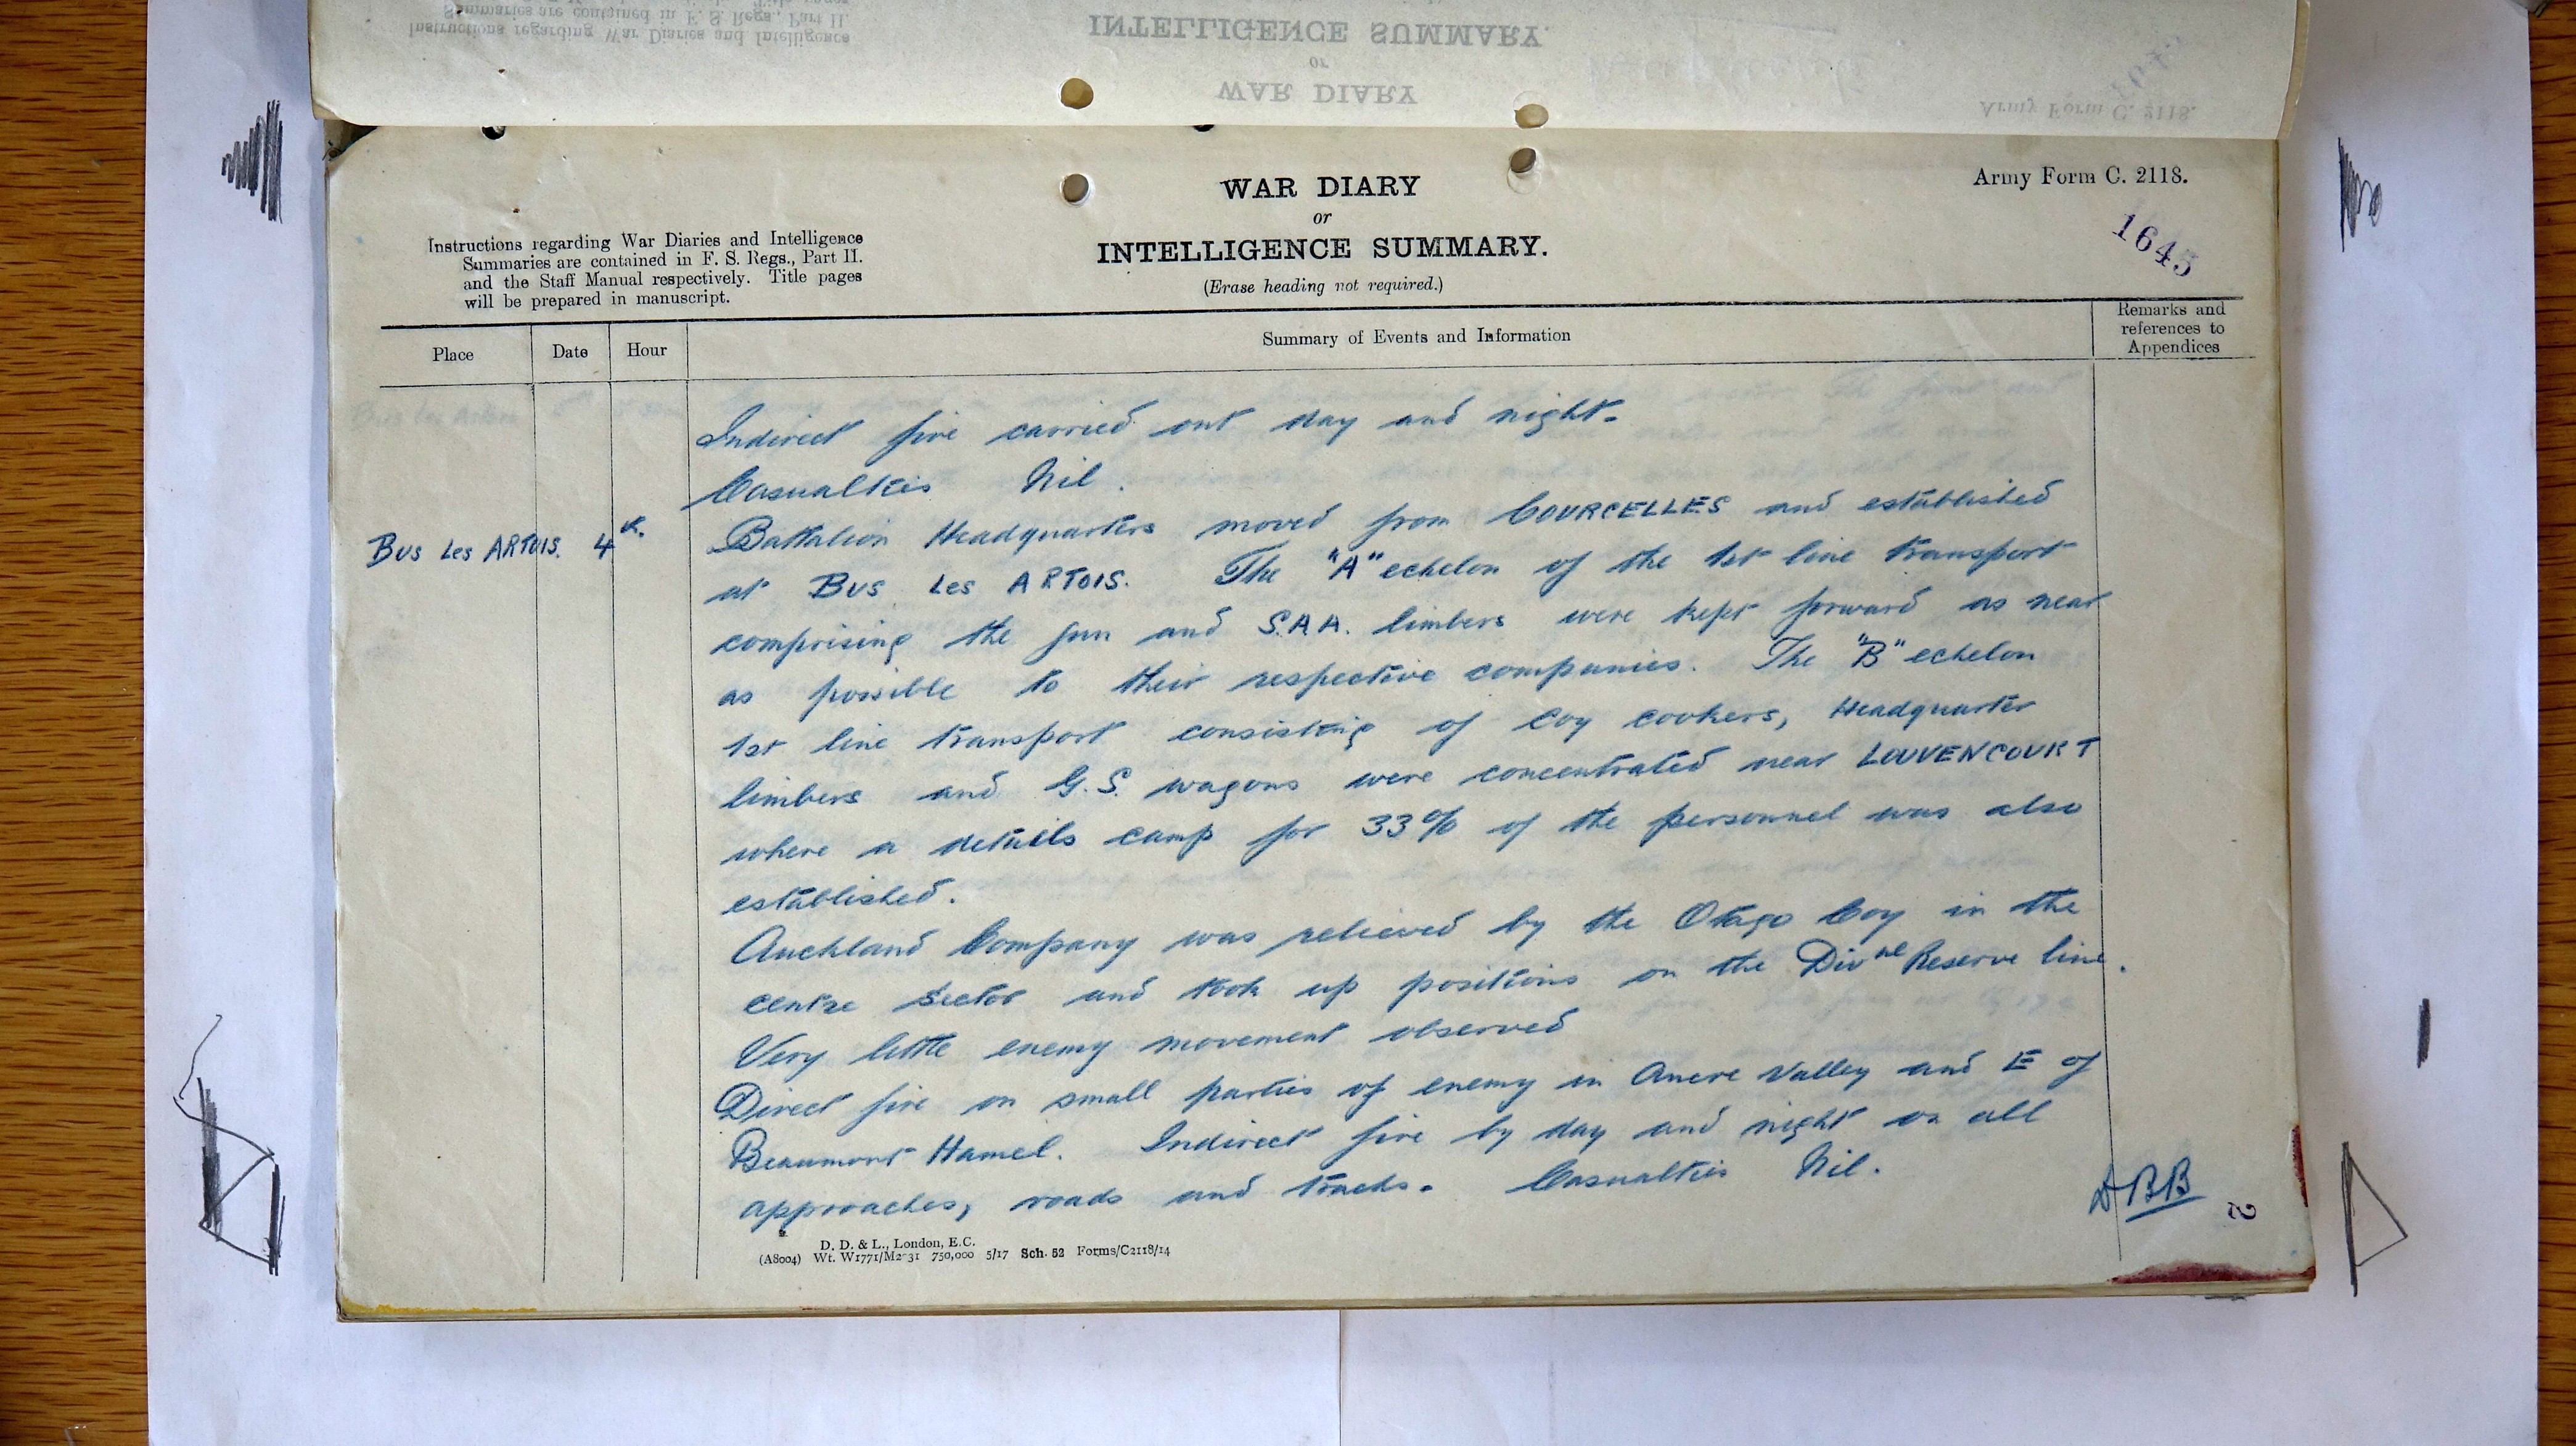 INTELLIGENCE SUMMARY.
or
WAR DIARY
Army Form C. 2118.
Instructions regarding War Diaries and Intelligence
Summaries are contained in F. S. Regs., Part II.
WAR DIARY
or
INTELLIGENCE SUMMARY.
(Erase heading not required.)
Army Form C. 2118.
1645
Instructions regarding War Diaries and Intelligence
Summaries are contained in F. S. Regs., Part II.
and the Staff Manual respectively. Title pages
will be prepared in manuscript.
Place Date Hour Summary of Events and Information Remarks and
references to
Appendices
Indirect fire carried out day and night.
Casualties Nil.
Bus Les ARTOIS. 4th. Battalion Headquarters moved from COURCELLES and established
at Bus Les ARTOIS. The "A" echelon of the 1st line transport
comprising the gun and S.A.A. limbers were kept forward as near
as possible to their respective companies. The "B" echelon
1st line transport consisting of coy cookers, Headquarter
limbers and G.S. wagons were concentrated near LOUVENCOURT
where a details camp for 33% of the personnel was also
established.
Auckland Company was relieved by the Otago Coy in the
centre sector and took up positions on the Divnl Reserve line.
Very little enemy movement observed
Direct fire on small parties of enemy in Ancre Valley and E of
Beaumont Hamel. Indirect fire by day and night on all
approaches, roads and tracks. Casualties Nil.
DBB
2
D. D. & L., London, E.C.
(A8004) Wt. W1771/M2031 750,000 5/17 Sch. 52 Forms/C2118/14